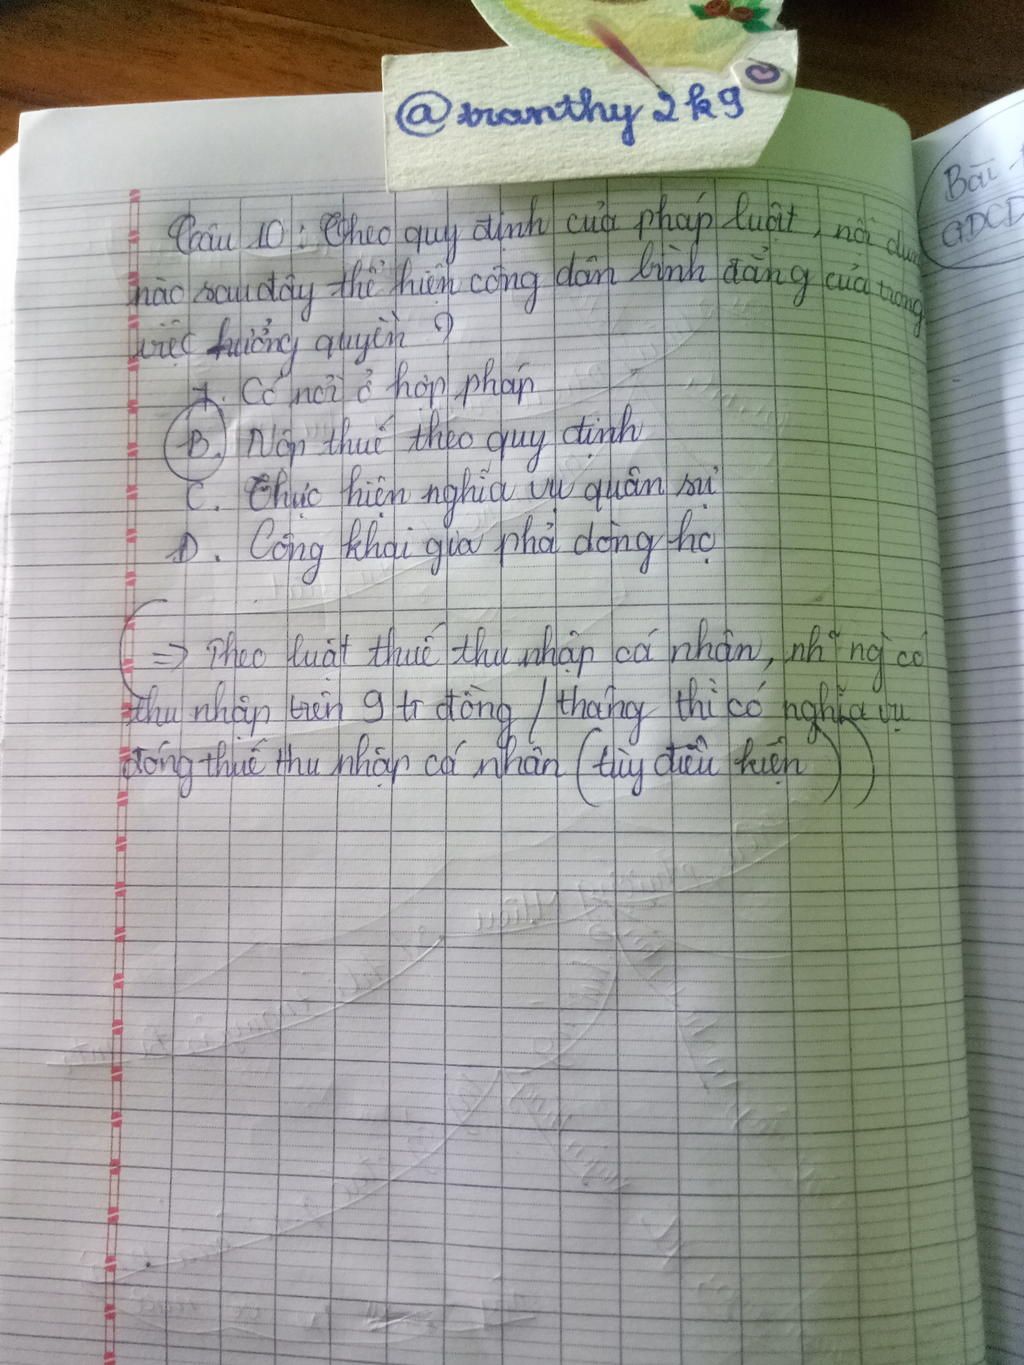 @tranthy2k9
Bài
GDCD
Câu 10: Theo quy định của pháp luật, nội dung
nào sau đây thể hiện công dân bình đẳng của trong
việc hưởng quyền?
A. Có nơi ở hợp pháp
B. Nộp thuế theo quy định
C. Thực hiện nghĩa vụ quân sự
D. Công khai gia phả dòng họ
(⇒ Theo luật thuế thu nhập cá nhân, nh~ng có
thu nhập trên 9 tr đồng / tháng thì có nghĩa vụ
đóng thuế thu nhập cá nhân (tùy điều kiện))